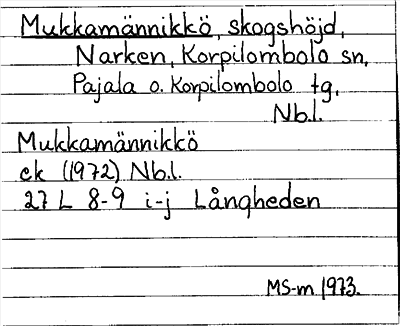 Mukkamännikkö, skogshöjd,
Narken, Korpilombolo sn,
Pajala o. Korpilombolo tg,
Nb.l.
Mukkamännikkö
ek (1972) Nb.l.
27 L 8-9 i-j Långheden
MS-m 1973.